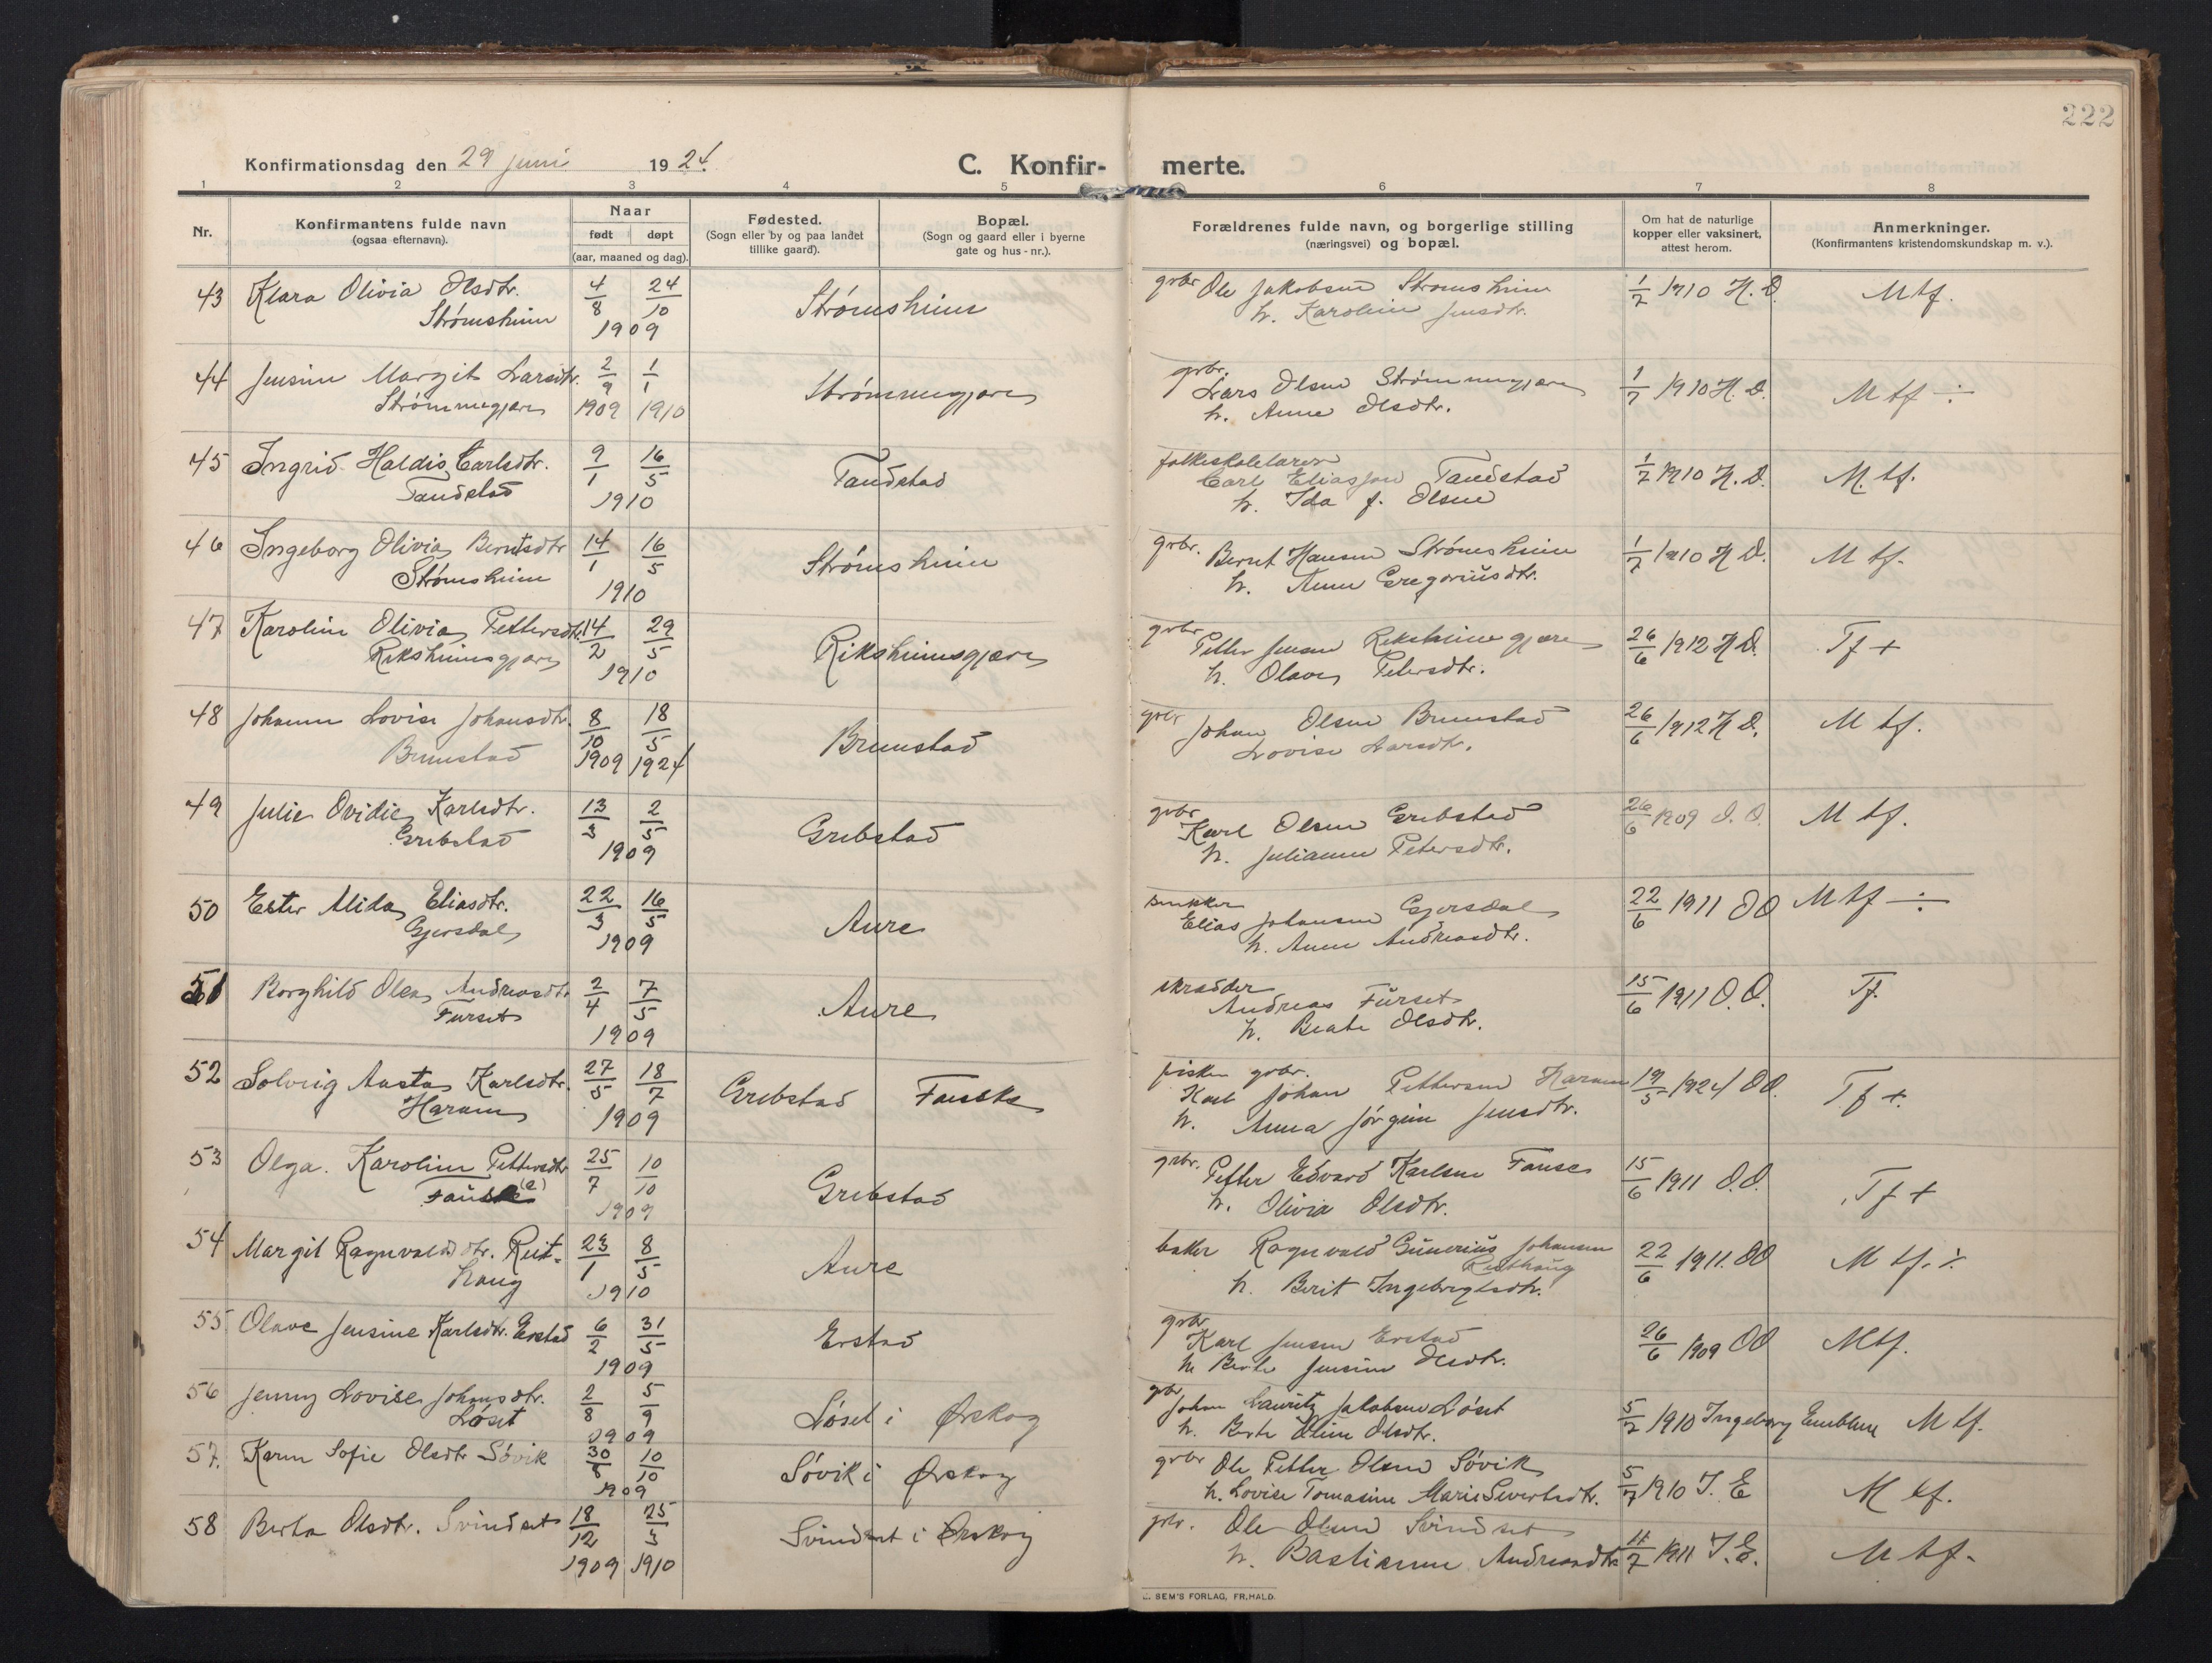 222
Konfirmationsdag den 29 juni 1924.
C. Konfir- merte.
1 2 3 4 5 6 7 8
Nr.
Konfirmantens fulde navn
(ogsaa efternavn).
Naar
født døpt
(aar, maaned og dag).
Fødested.
(Sogn eller by og paa landet
tillike gaard).
Bopæl.
(Sogn og gaard eller i byerne
gate og hus-nr.).
Forældrenes fulde navn, og borgerlige stilling
(næringsvei) og bopæl.
Om hat de naturlige
kopper eller vaksinert,
attest herom.
Anmerkninger.
(Konfirmantens kristendomskundskap m. v.).
43 Klara Olivia Olsdtr. 4/8 24/10 Strømsheim grbr Ole Jakobsen Strømsheim 1/7 1910 H. D. Mtf.
Strømsheim 1909 h. Karoline Jensdtr.
44 Jensine Margit Larsdtr. 2/9 1/1 Strømmegjære grbr. Lars Olsen Strømmegjære 1/7 1910 H. D. Mtf ÷
Strømmegjære 1909 1910 h. Anne Olsdtr.
45 Ingrid Haldis Carlsdtr. 9/1 16/5 Tandstad folkeskolelærer 1/7 1910 H. D. M. tf.
Tandstad 1910 Carl Eliassen Tandstad
h. Ida f. Olsen
46 Ingeborg Olivia Berntsdtr 14/1 16/5 Strømsheim grbr. Bernt Hansen Strømsheim 1/7 1910 H D. M tf.
Strømsheim 1910 h. Anne Gregoriusdtr.
47 Karoline Olivia Pettersdtr. 14/2 29/5 Riksheimsgjære grbr Petter Jensen Riksheimsgjære 26/6 1912 H D. Tf +
Riksheimsgjære 1910 h. Olave Petersdtr.
48 Johanne Lovise Johansdtr. 8/10 18/5 Brunstad grbr Johan Olsen Brunstad 26/6 1912 H D. M tf.
Brunstad 1909 1924 Lovise Larsdtr.
49 Julie Ovidie Karlsdtr. 13/3 2/5 Grebstad grbr Karl Olsen Grebstad 26/6 1909 O. O. M tf.
Grebstad 1909 h. Julianne Petersdtr.
50 Ester Alida Eliasdtr. 22/3 16/5 Aure snekker Elias Johansen Gjersdal 22/6 1911 O O M tf ÷
Gjersdal 1909 h. Anne Andreasdtr.
51 Borghild Olea Andreasdtr 2/4 7/5 Aure skrædder Andreas Furset 15/6 1911 O. O. Tf.
Furset 1909 h. Beate Olsdtr.
52 Solveig Aasta Karlsdtr. 27/5 18/7 Grebstad Fauske fisker grbr. 19/5 1924 O O. Tf +.
Haram 1909 Karl Johan Pettersen Haram
h. Anna Jørgine Jensdtr.
53 Olga Karoline Pettersdtr 25/7 10/10 Grebstad grbr. Petter Edvard Karlsen Fauske 15/6 1911 O. O. Tf +
Fauske (e) 1909 h. Olivia Olsdtr.
54 Margit Ragnvaldsdtr. Reit- 23/1 8/5 Aure baker Ragnvald Gunerius Johansen 22/6 1911. O O M tf. ÷
haug 1910 Reithaug
h. Berit Ingebrigtsdtr.
55 Olave Jensine Karlsdtr. Erstad 6/2 31/5 Erstad grbr Karl Jensen Erstad 26/6 1909 O O Mtf.
1909 h. Berte Jensine Olsdtr.
56 Jenny Lovise Johansdtr. 2/8 5/9 Løset i Ørskog grbr Johan Lauritz Jakobsen Løset 5/7 1910 Ingeborg Emblem M tf.
Løset 1909 h. Berte Oline Olsdtr.
57. Karen Sofie Olsdtr Søvik 30/8 10/10 Søvik i Ørskog grbr Ole Petter Olsen Søvik 5/7 1910 I. E M tf.
1909 h. Lovise Tomasine Marie Severtsdtr.
58 Berta Olsdtr. Svindset 18/12 25/3 Svindset i Ørskog grbr. Ole Olsen Svindset 11/7 1911 I. E. M tf.
1909 1910 h. Bastianne Andreasdtr
SEM'S FORLAG, FR.HALD.